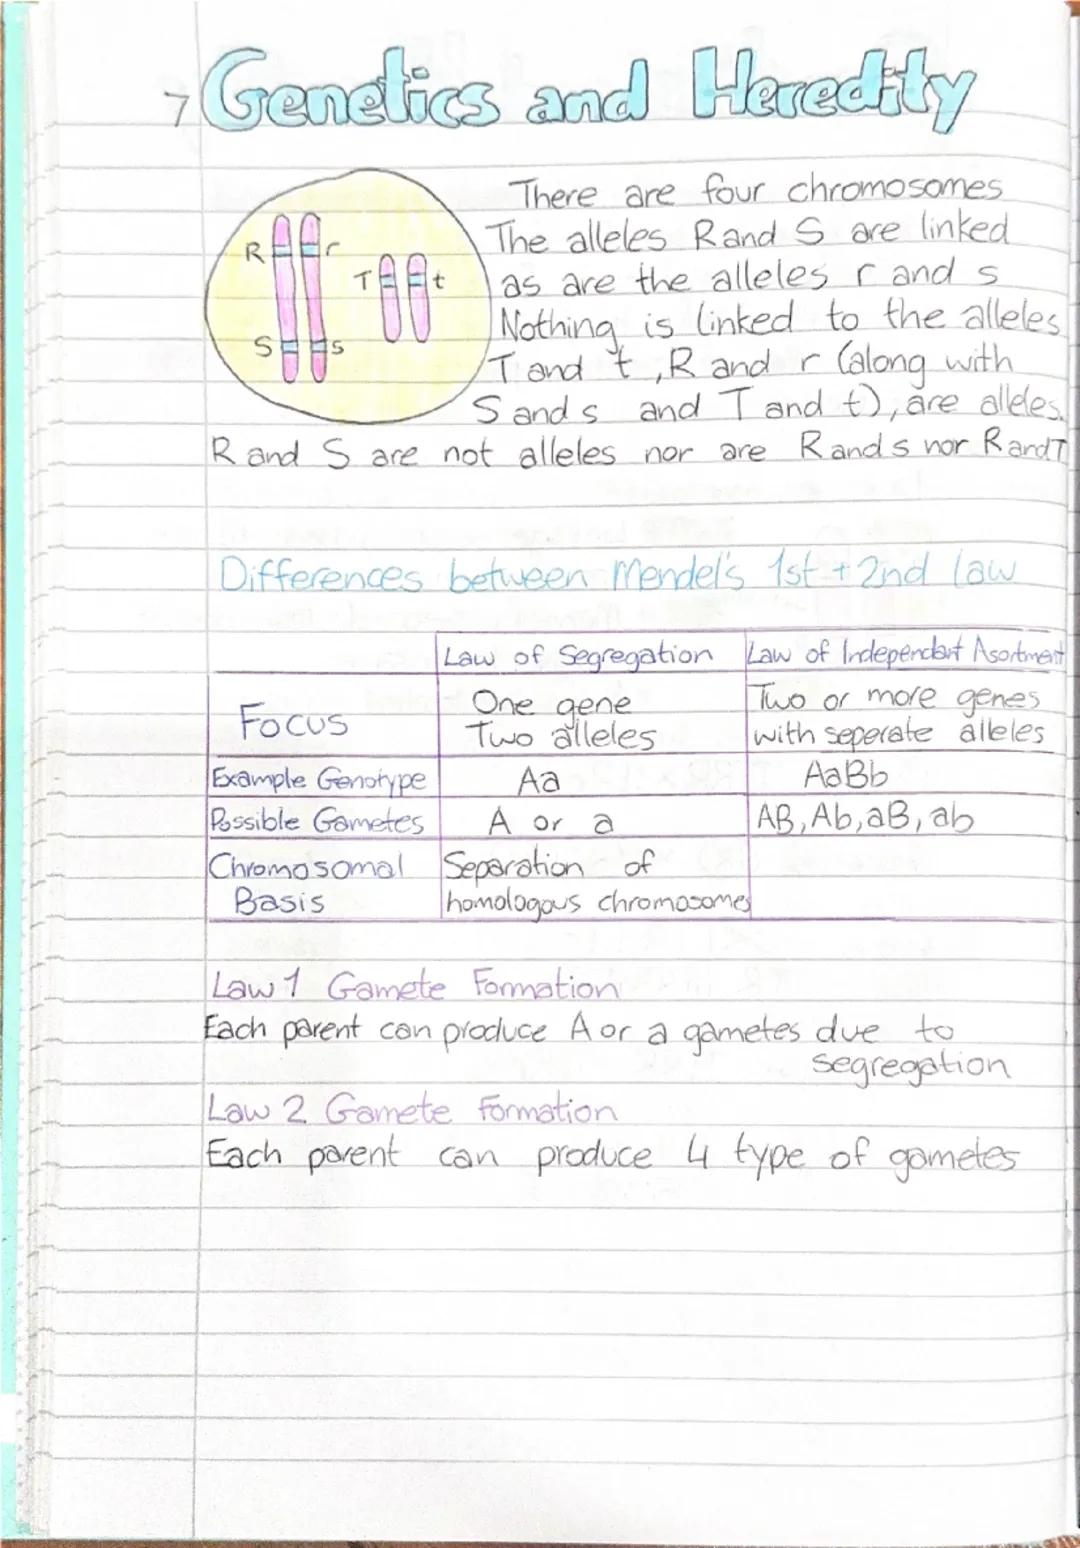 7 Genetics and Heredity
There are four chromosomes
The alleles R and S are linked
as are the alleles r and s
Nothing is linked to the alleles
T and t, R and r (along with
S and s and T and t), are alleles.
R and S are not alleles nor are R and s nor R and T
R r
T t
S s
Differences between Mendel's 1st + 2nd law
Law of Segregation Law of Independant Asortment
Focus
One gene
Two alleles
Two or more genes
with seperate alleles
Example Genotype Aa AaBb
Possible Gametes A or a AB, Ab, aB, ab
Chromosomal
Basis
Separation of
homologous chromosomes
Law 1 Gamete Formation
Each parent can produce A or a gametes due to
segregation
Law 2 Gamete Formation
Each parent can produce 4 type of gametes